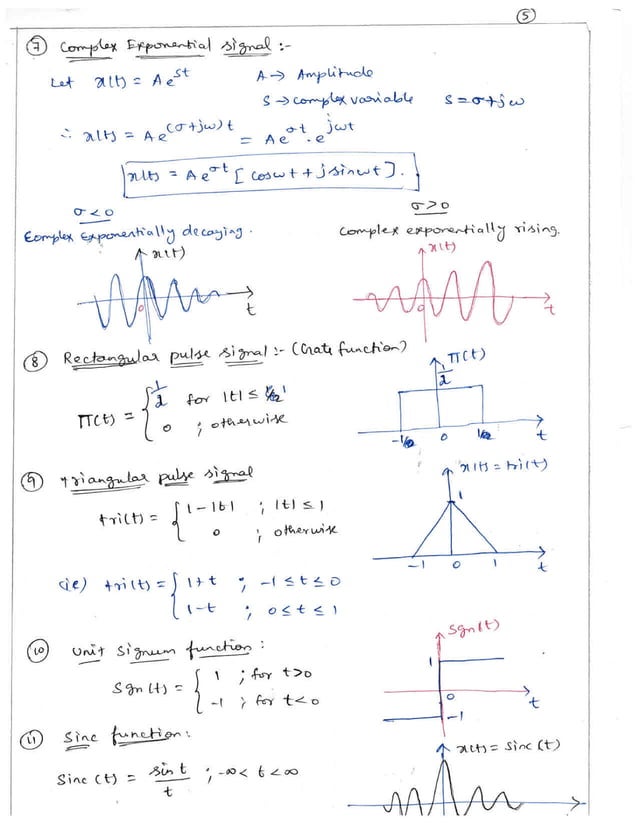 5
7 Complex Exponential signal :-
Let x(t) = A e^st A → Amplitude
S → complex variable S = σ + jω
∴ x(t) = A e^(σ+jω)t = A e^σt . e^jωt
x(t) = A e^σt [ cosωt + j sinωt ] .
σ < 0 σ > 0
Complex Exponentially decaying . complex exponentially rising.
x(t) x(t)
0 t 0 t
8 Rectangular pulse signal :- (Gate function)
Π(t)
Π(t) = { for |t| ≤
0 ; otherwise
0 t
9 triangular pulse signal
x(t) = tri(t)
tri(t) = { 1 - |t| ; |t| ≤ 1
0 ; otherwise
1
-1 0 1 t
(ie) tri(t) = { 1+t ; -1 ≤ t ≤ 0
1-t ; 0 ≤ t ≤ 1
10 Unit Signum function :
Sgn(t)
Sgn(t) = { 1 ; for t>0
-1 ; for t<0
1
0 t
-1
11 Sinc function :
x(t) = Sinc(t)
Sinc (t) = sin t / t ; -∞ < t < ∞